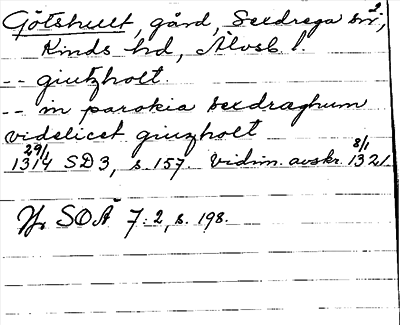 Götshult, gård, Sexdrega sn,
Kinds hd, Älvsb. l.
-- giutzholt.
-- in parokia sexdraghum
videlicet giuzholt
29/1 8/1
1314 SD 3, s. 157. Vidim. avskr. 1321.
Jfr SOÄ 7:2, s. 198.